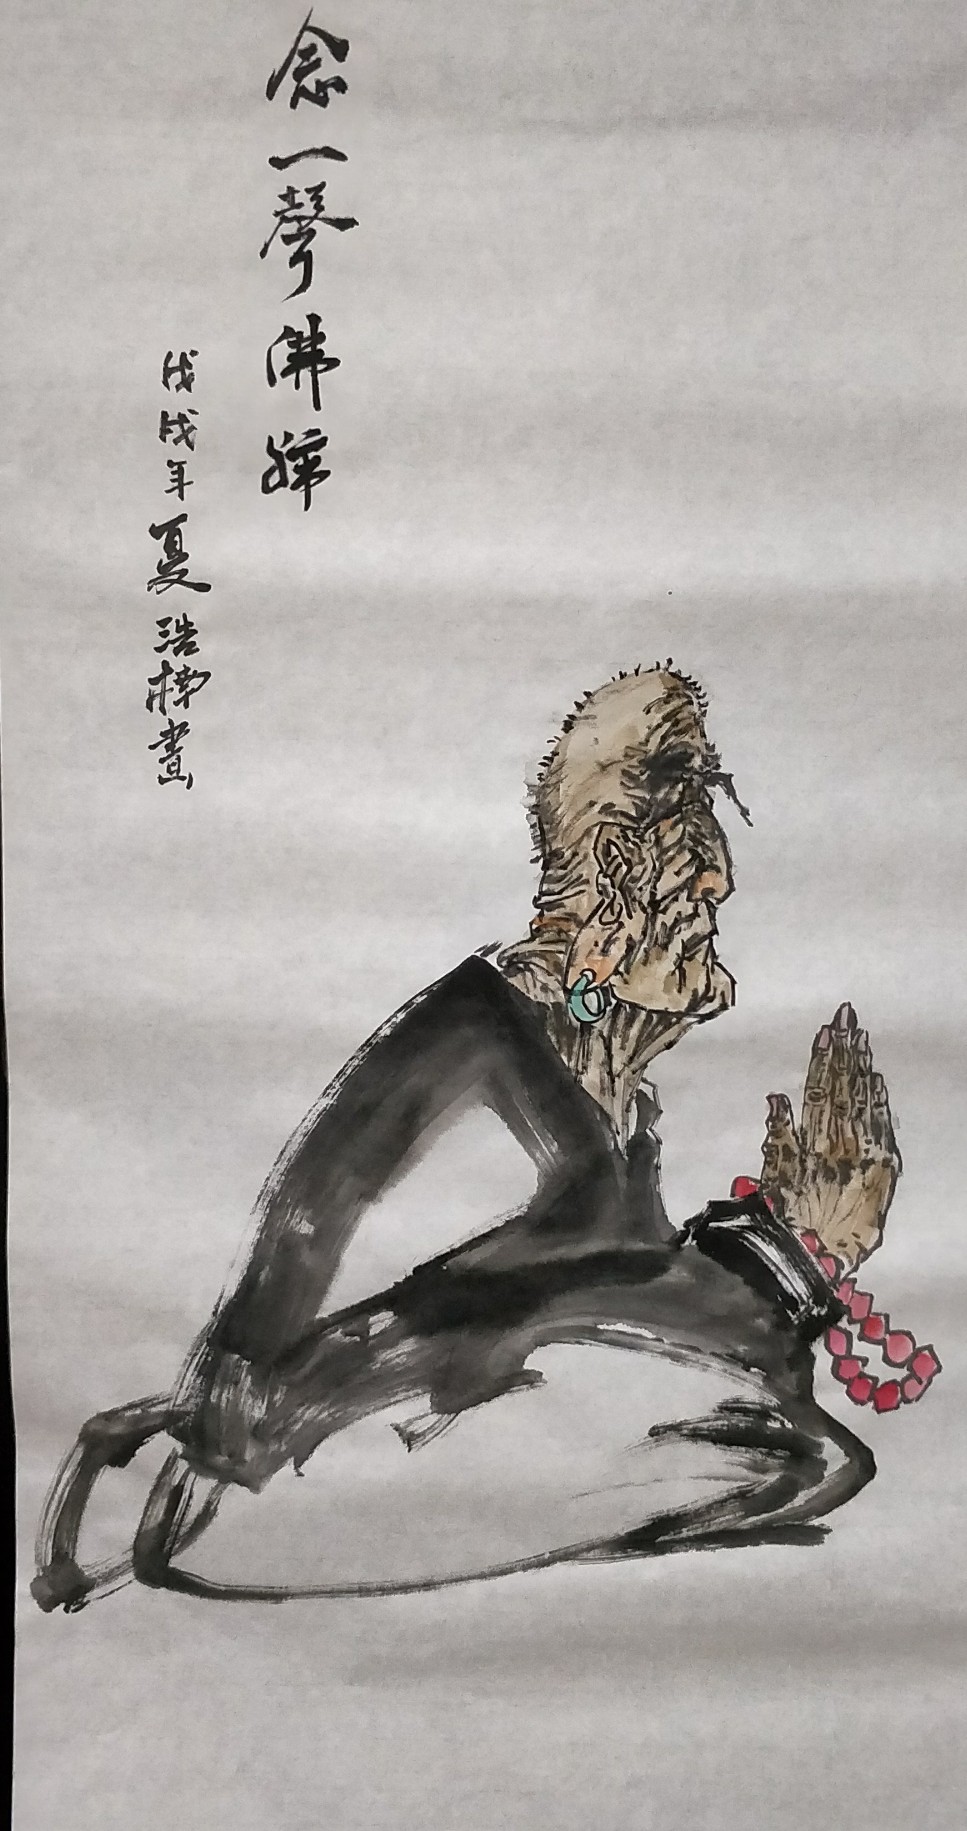 念一聲佛
戊戌年夏浩畫